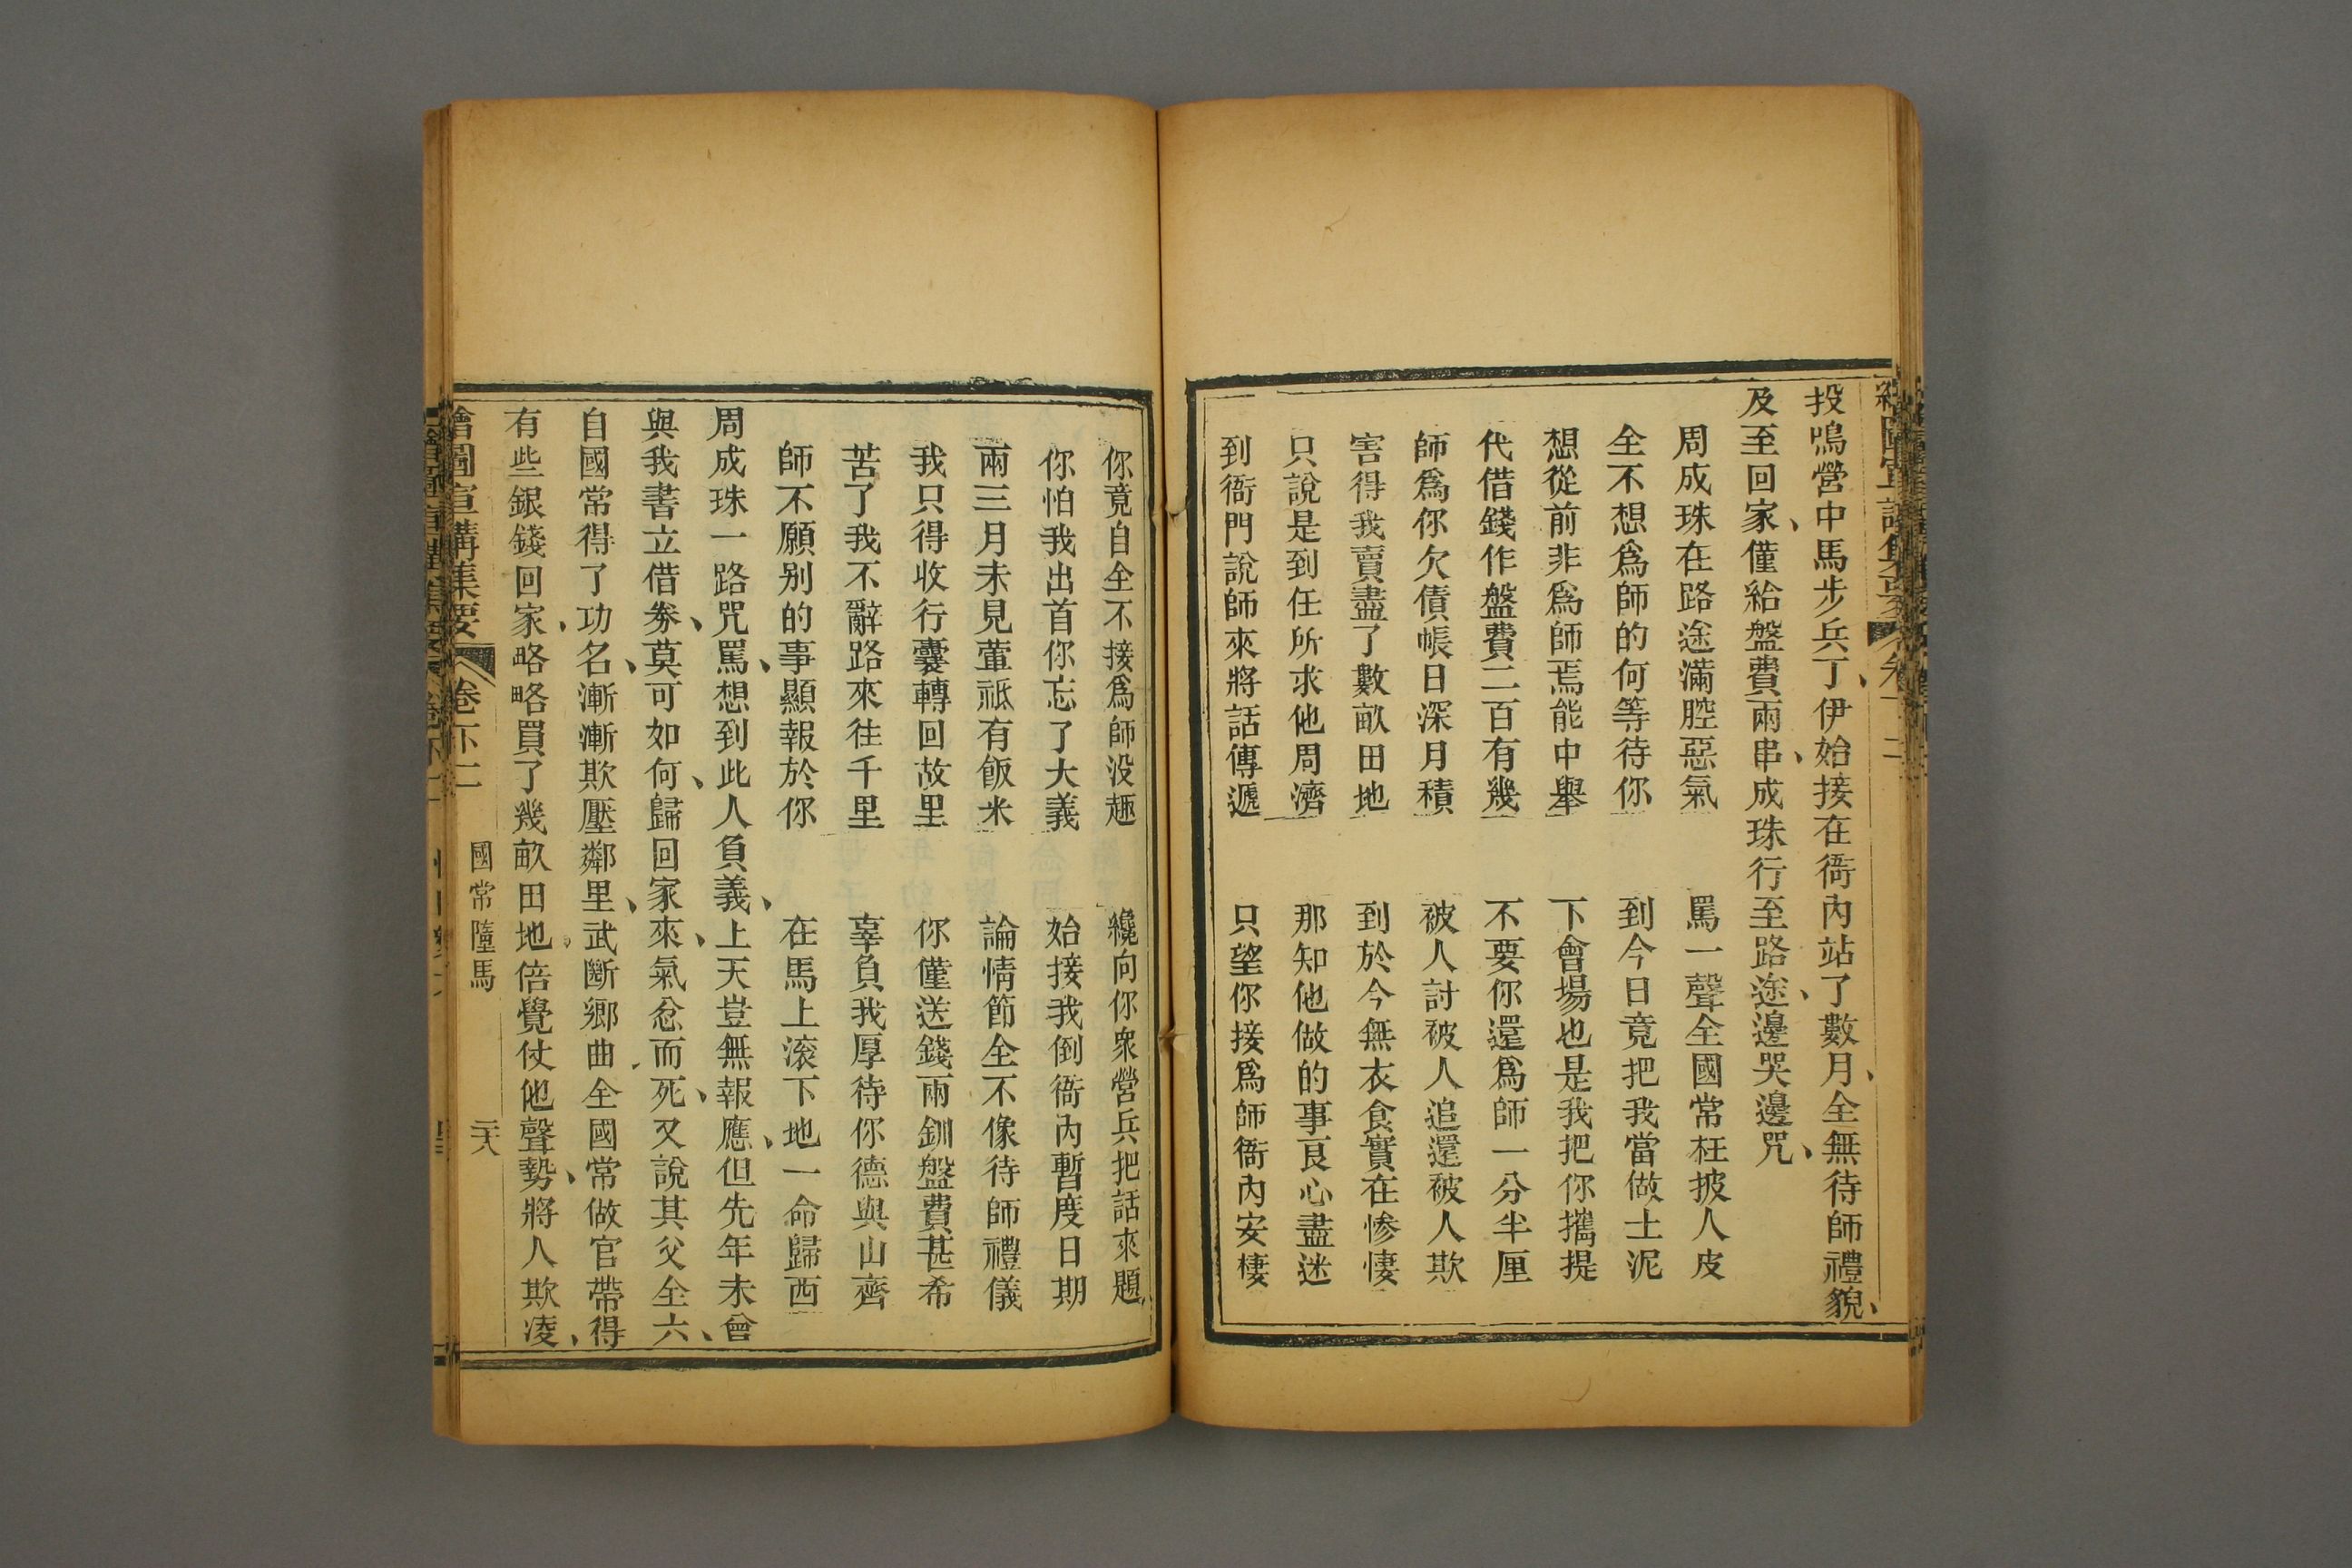 投鳴營中馬步兵丁、伊始接在衙內站了數月、全無待師禮貌、
及至回家、僅給盤費兩串、成珠行至路途、邊哭邊咒、
周成珠在路途滿腔惡氣　罵一聲全國常枉披人皮
全不想爲師的何等待你　到今日竟把我當做土泥
想從前非爲師焉能中舉　下會場也是我把你攜提
代借錢作盤費二百有幾　不要你還爲師一分半厘
師爲你欠債帳日深月積　被人討被人追還被人欺
害得我賣盡了數畝田地　到於今無衣食實在慘悽
只說是到任所求他周濟　那知他做的事良心盡迷
到衙門說師來將話傳遞　只望你接爲師衙內安棲
你竟自全不接爲師没趣　纔向你衆營兵把話來題
你怕我出首你忘了大義　始接我倒衙內暫度日期
兩三月未見葷祗有飯米　論情節全不像待師禮儀
我只得收行囊轉回故里　你僅送錢兩釧盤費甚希
苦了我不辭路來往千里　辜負我厚待你德與山齊
師不願别的事顯報於你　在馬上滚下地一命歸西
周成珠一路咒罵、想到此人負義、上天豈無報應、但先年未曾
與我書立借劵、莫可如何、歸回家來、氣忿而死、又說其父全六、
自國常得了功名、漸漸欺壓鄰里、武斷鄉曲全國常做官帶得
有些銀錢回家、略略買了幾畝田地。倍覺仗他聲勢、將人欺凌、
繪圖宣講集要　卷下二　國常墮馬　二六